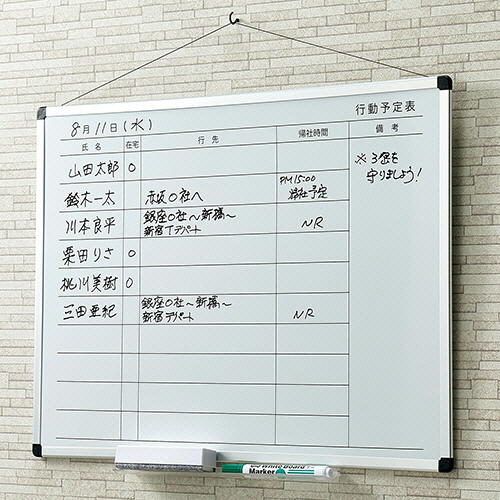 行動予定表
8月11日(水)
氏名 在宅 行先 帰社時間 備考
山田太郎 O
※3密を
守りましょう!
鈴木一太 赤坂O社へ PM15:00
帰社予定
川本良平 銀座O社〜新橋〜
新宿Tデパート NR
栗田りさ O
桃川美樹 O
三田亜紀 銀座O社〜新橋〜
新宿デパート NR
White Board
Marker